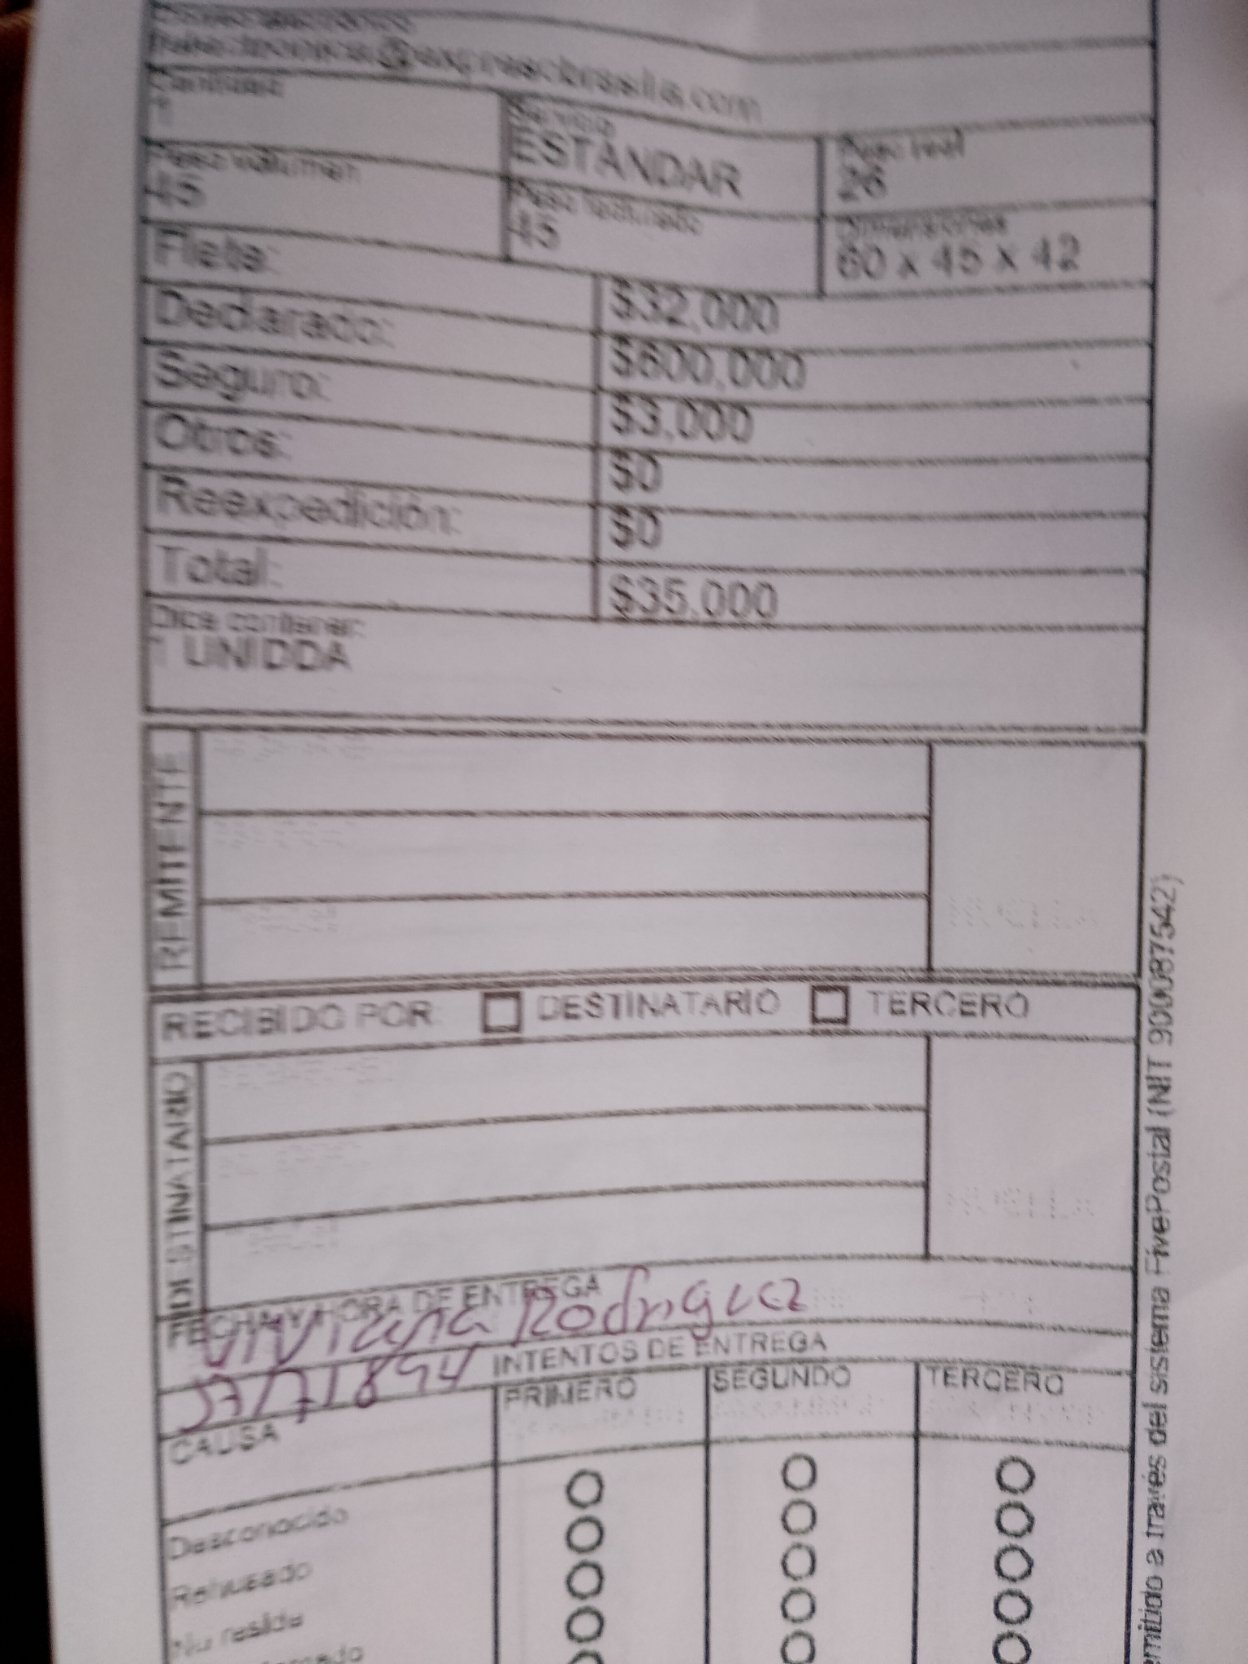 @expresobrasilia.com
Cantidad
1
Servicio
ESTÁNDAR
Peso real
26
Peso volumen
45
Peso facturado
45
Dimensiones
60 x 45 x 42
Flete: $32,000
Declarado: $600,000
Seguro: $3,000
Otros: $0
Reexpedición: $0
Total: $35,000
Dice contener:
1 UNIDDA
REMITENTE
HUELLA
RECIBIDO POR: DESTINATARIO TERCERO
DESTINATARIO
HUELLA
FECHA Y HORA DE ENTREGA
Viviana Rodriguez
INTENTOS DE ENTREGA
CAUSA
PRIMERO
SEGUNDO
TERCERO
Desconocido
Rehusado
No reside
emitido a través del sistema FivePostal (NIT 900087542)